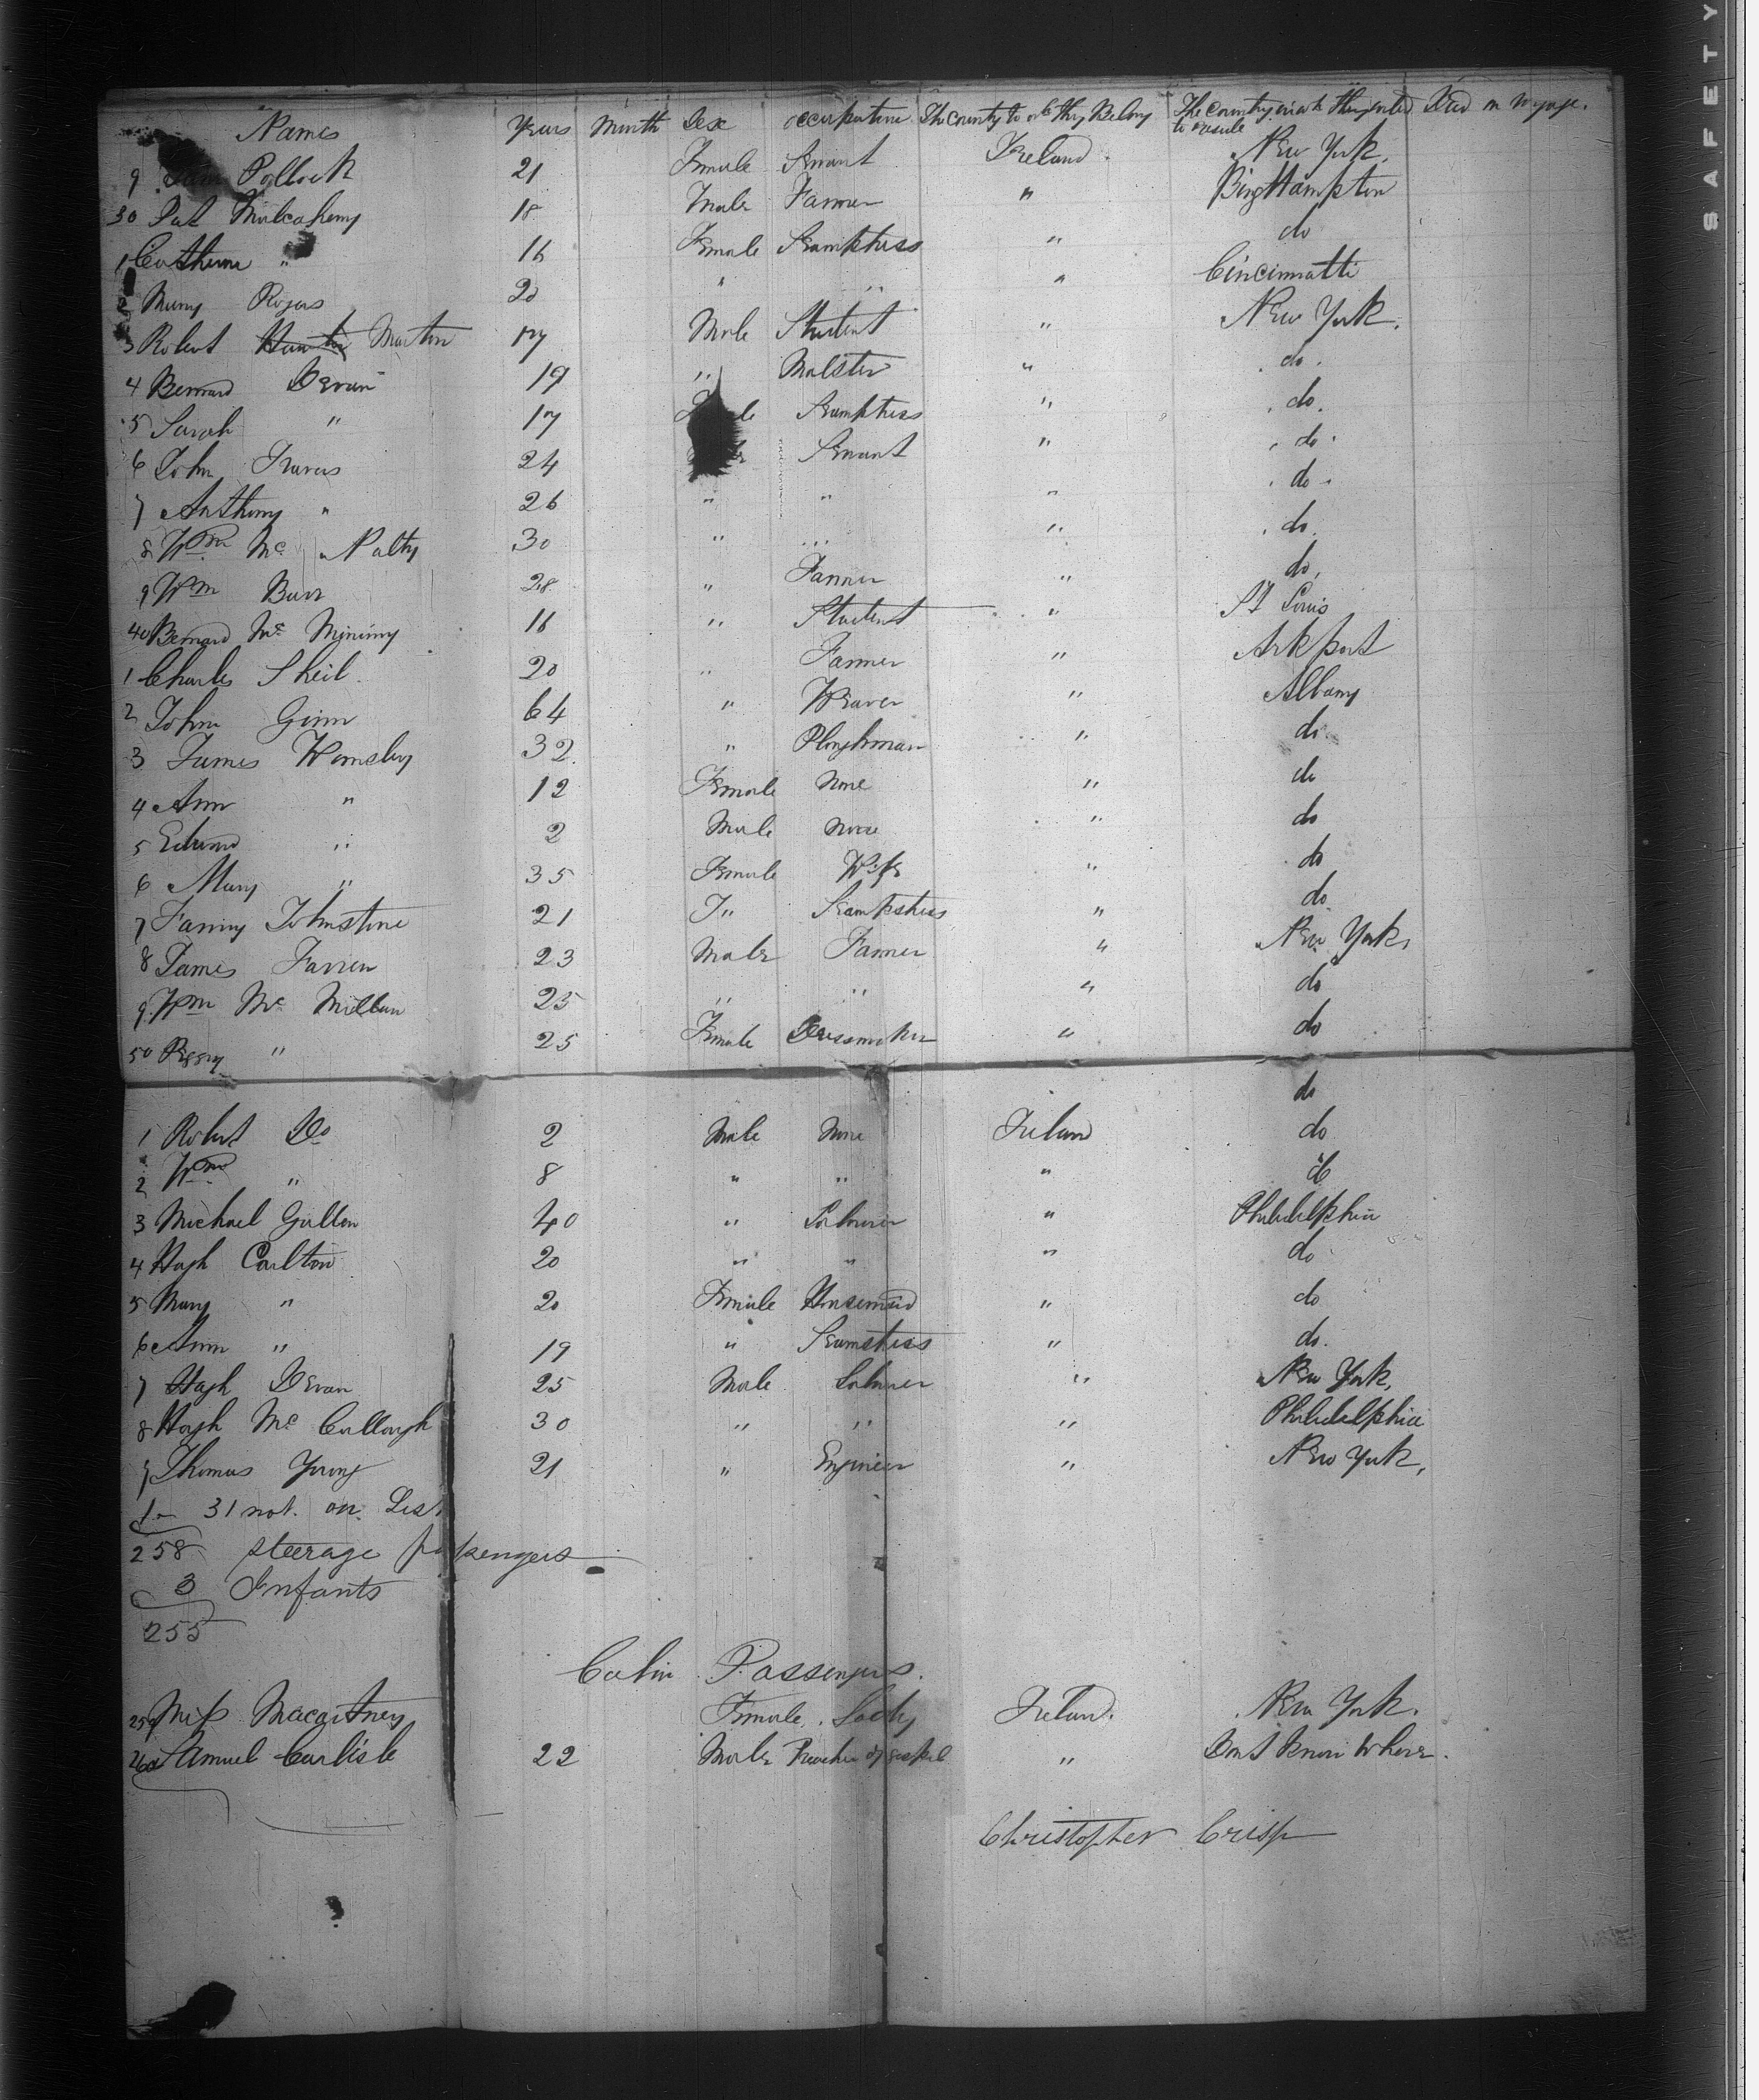 Names Years Month Sex occupation The County to wh they Belong The Country in wh they intend to reside Died on Voyage.
9 Pollock 21 Female Servant Ireland New York.
30 Pat Mulcaheny 18 Male Farmer " BingHampton
1 Catherine " 16 Female Seamptress " do
2 Mary Rogers 20 " " " Cincinnatti
3 Robert Hunter Marton 17 Male Student " New York.
4 Bernard Devan 19 " Malster " do.
5 Sarah " 17 Female Seamptress " do.
6 John Travers 24 Servant " do.
7 Anthony " 26 " " " do.
8 Wm Mc Nalty 30 " " " do.
9 Wm Barr 28 " Farmer " do,
40 Bernard Mc Minimy 16 " Student " St Louis
1 Charles Sheil. 20 " Farmer " Arkport
2 John Ginn 64 " Weaver " Albany
3 James Wamsley 32. " Ploughman " do.
4 Ann " 12 Female None " do
5 Edward " 2 Male None " do
6 Mary " 35 Female Wife " do
7 Fanny Johnstone 21 F" Seampstress " do
8 James Farren 23 Male Farmer " New York,
9 Wm Mc Millan 25 " " " do
50 Peggy " 25 Female Dressmaker " do
do
1 Robert Do 2 Male None Ireland do
2 Wm " 8 " " " do
3 Michael Gallon 40 " Labourer " Philidelphia
4 Hugh Carlton 20 " " " do
5 Mary " 20 Female Housemaid " do
6 Ann " 19 " Seamstress " do.
7 Hugh Devan 25 Male Labourer " New York,
8 Hugh Mc Cullough 30 " " " Philidelphia
9 Thomas Young 21 " Engineer " New York,
1 - 31 not. on. List
258 steerage passengers
3 Infants
255
Cabin Passengers.
259 Miss Macartney Female. Lady Ireland. New York.
260 Samuel Carlisle 22 Male Preacher of gospel " Dont know Where.
Christopher Crisp
SAFETY